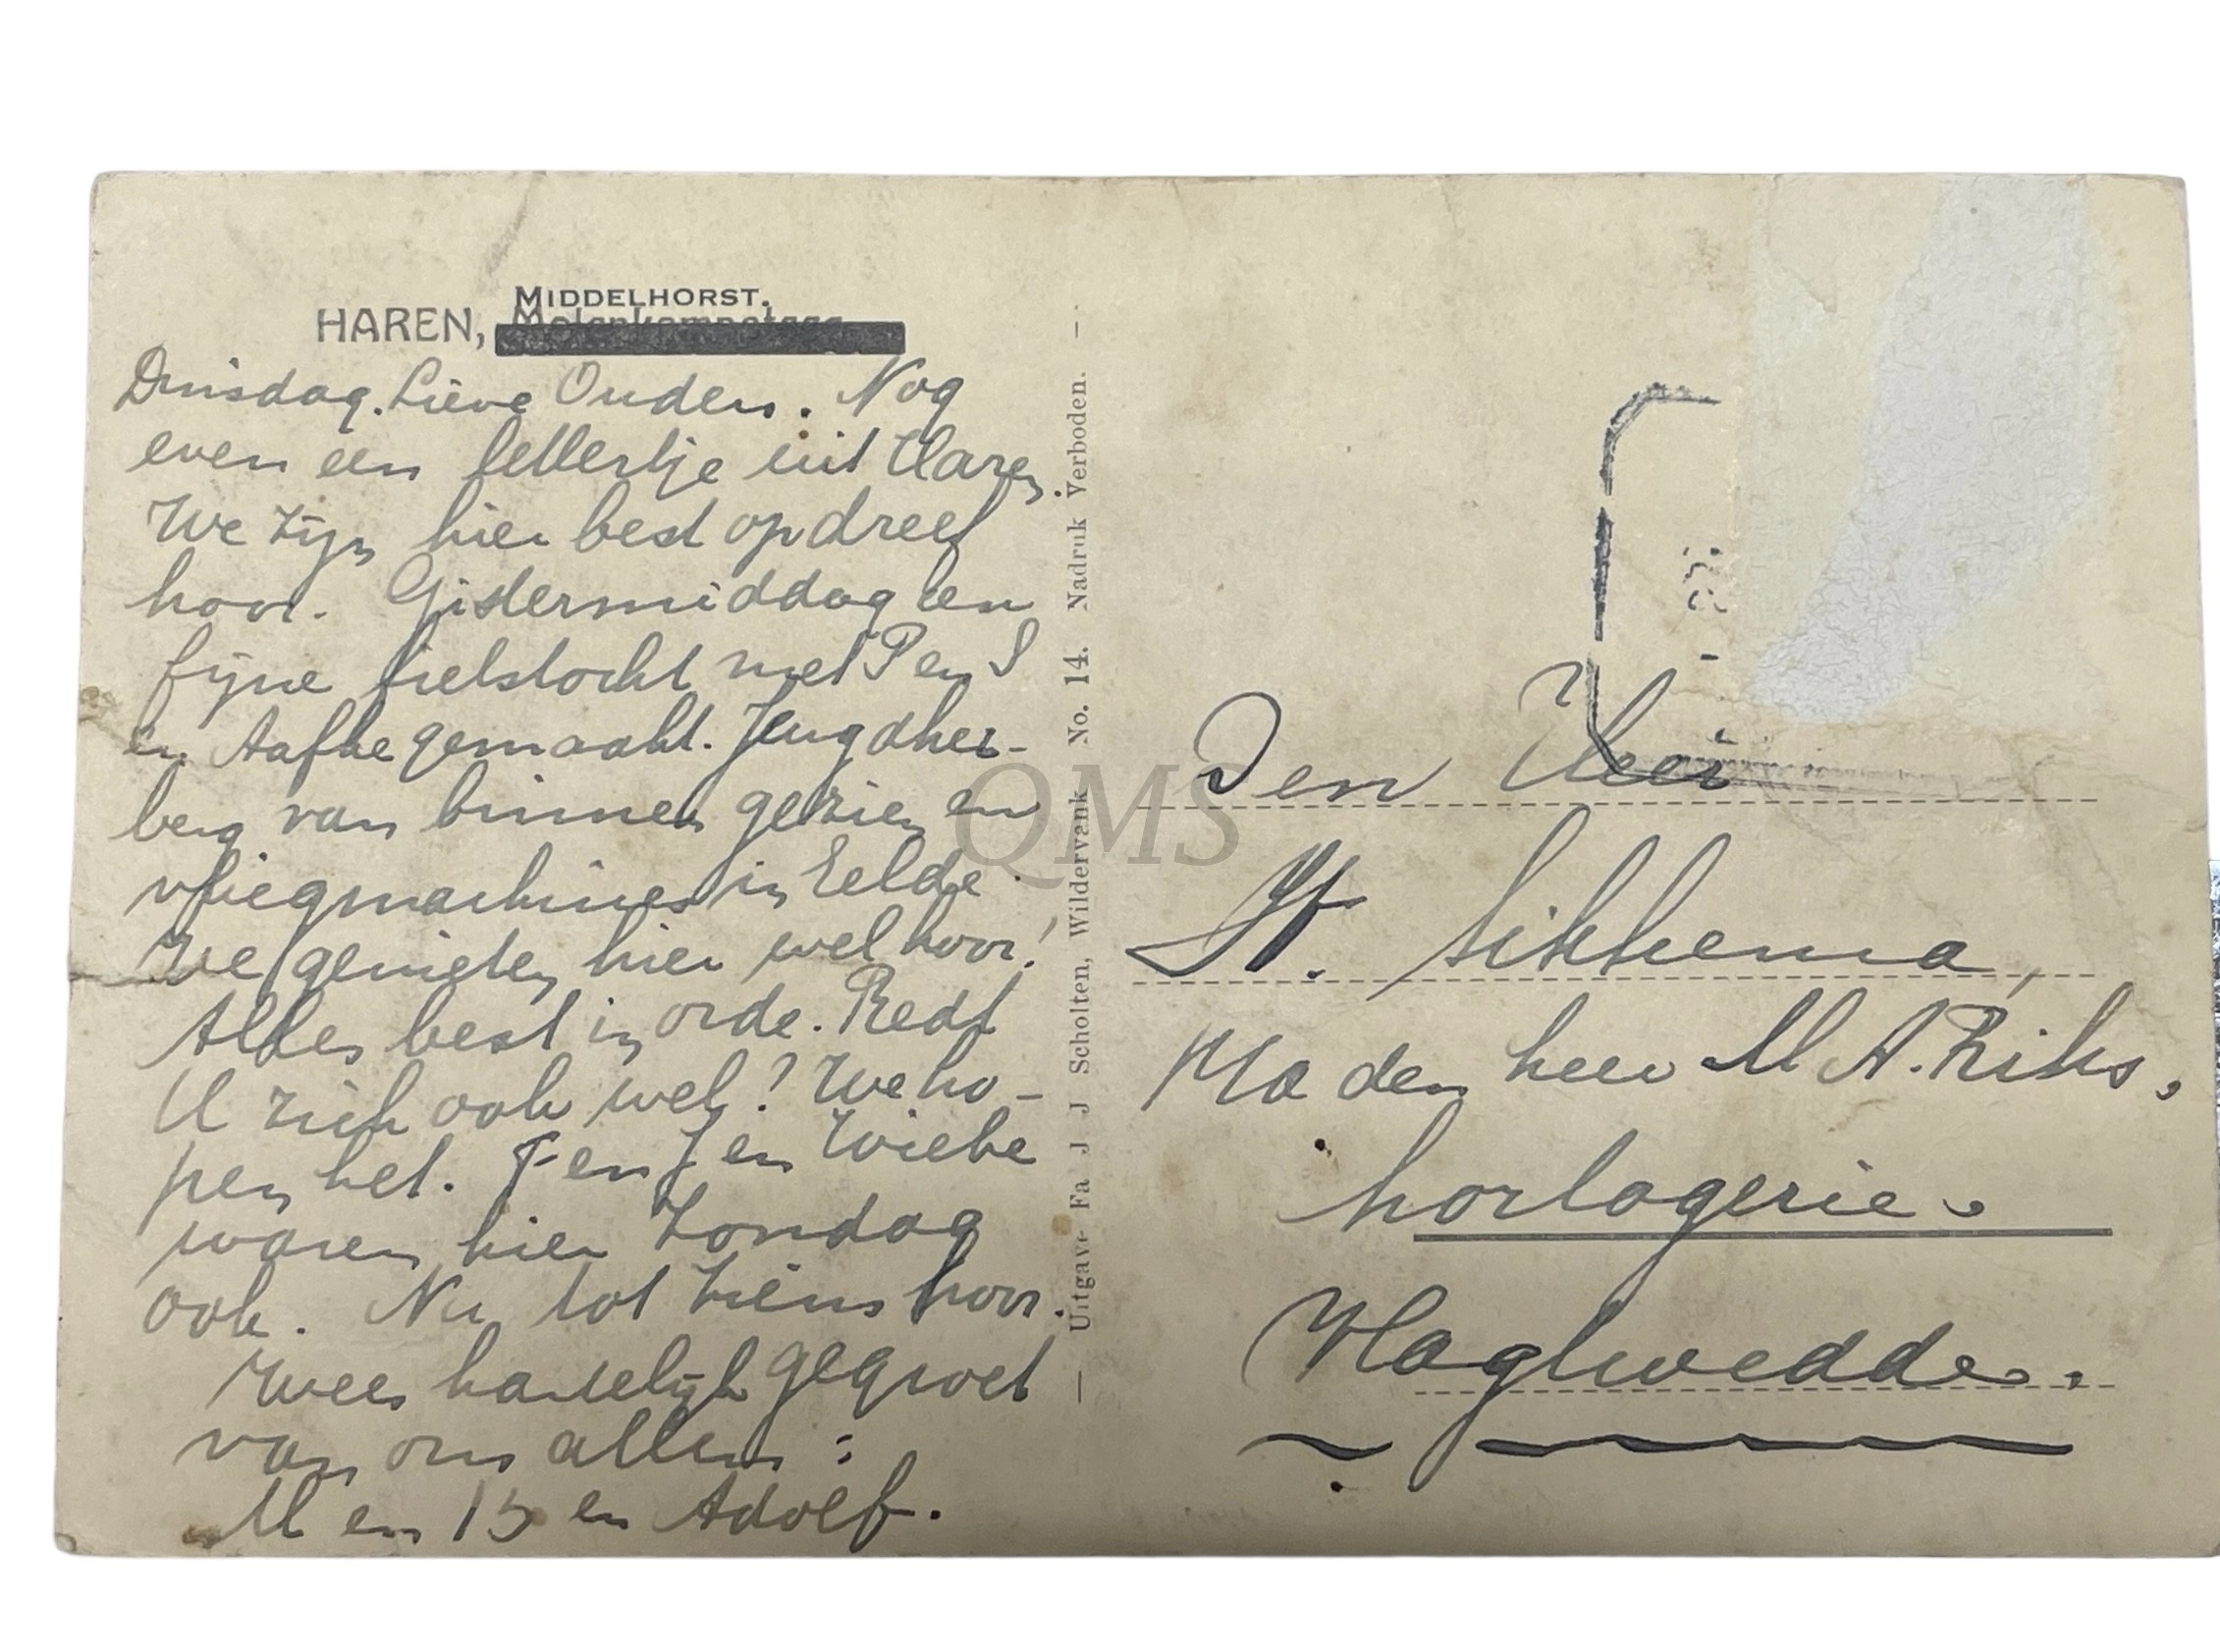 MIDDELHORST.
HAREN, Molenkampsteeg
Dinsdag. Lieve Ouders. Nog
even een lettertje uit Haren.
We zijn hier best op dreef
hoor. Gistermiddag een
fijne fietstocht met P en S
en Aafke gemaakt. Jeugdher-
berg van binnen gezien en
vliegmachines in Eelde.
We genieten hier wel hoor!
Alles best in orde. Redt
U zich ook wel? We ho-
pen het. F en J en Wiebe
waren hier Zondag
ook. Nu tot ziens hoor.
Wees hartelijk gegroet
van ons allen:
M en B en Adolf.
— Uitgave Fa J J Scholten, Wildervank No. 14. Nadruk Verboden. —
Den Heer
H. Sikkema,
p/a den heer M A. Riks,
horlogerie.
Vlagtwedde.
QMS